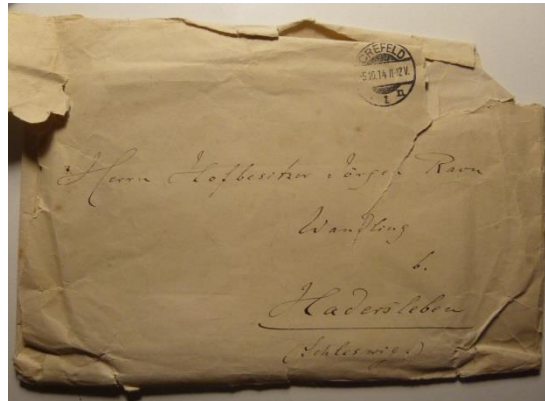 CREFELD
5.10.14 11-12 V.
1 n
Herrn Hofbesitzer Jörgen Ravn
Wandling
b.
Hadersleben
(Schleswig.)